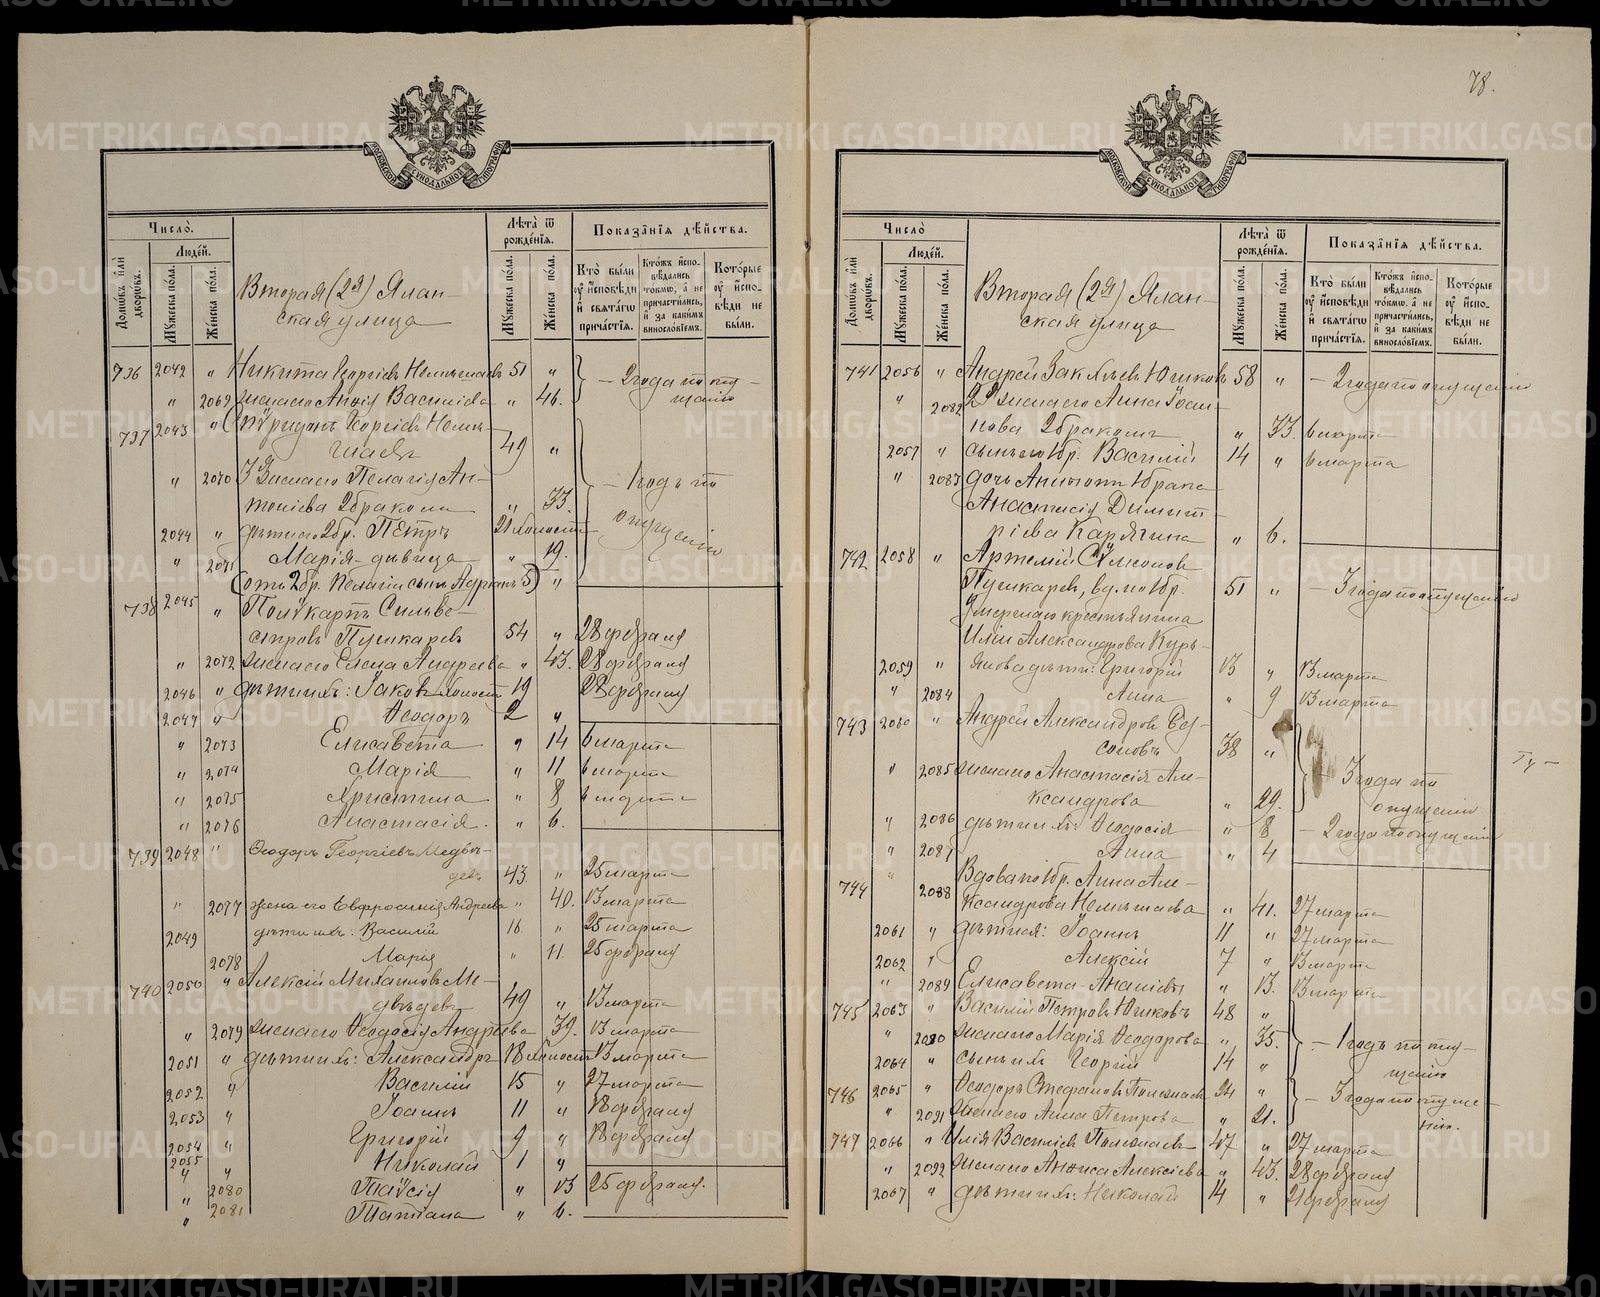 78.
МОСКОВСКОЙ СѴНОДАЛЬНОЙ ТИПОГРАФІИ
Число̀.
Людéй.
Лѣ́та ѿ рождéнїѧ.
Показа̑нїѧ дѣ́йства.
Домѡ́въ и҆лѝ дворѡ́въ.
Мꙋ́жеска по́ла.
Жéнска по́ла.
Мꙋ́жеска по́ла.
Жéнска по́ла.
Кто̀ бы́ли ᲂу҆ и҆́сповѣди и҆ свѧта́гѡ прича́стїѧ.
Кто́жъ и҆спо-вѣ́дались то́кмѡ, а҆ не причасти́лись, и҆ за каки́мъ винослóвїемъ.
Котóрые ᲂу҆ и҆́спо-вѣди не бы́ли.
Вторая (2я) Ялан-
ская улица
736 2042 " Никита Георгіевъ Немытаевъ 51 " — 2 года по опу-
" 2069 жена его Васильева " 46. щенію
737 2043 " Георгіевъ Немы-
таевъ 49 "
" 2070 3 жена его Пелагія Ан- — 1 годъ по
тоніева 2 бракомъ " 33. опущенію
2044 " дѣти его 2 бр. Петръ 21 холостъ
" 2071 Марія — дѣвица " 19.
(отъ 2 бр. Пелагіи сынъ 5) "
738 2045 " Поликарпъ Сильве-
стровъ Пушкаревъ 54 " 28 февраля
" 2072 жена его Елена Андреева " 43. 28 февраля
2046 " дѣти ихъ: Іаковъ холостъ 19 28 февраля
2047 " Ѳеодоръ 2 "
" 2073 Елисавета " 14 6 марта
" 2074 Марія " 11 6 марта
" 2075 Христина " 8 6 марта
" 2076 Анастасія. " 6.
739 2048 " Ѳеодоръ Георгіевъ Медвѣ-
девъ 43. " 25 марта
" 2077 жена его Евфросинія Андреева " 40. 13 марта
2049 дѣти ихъ: Василій 16 " 25 марта
2078 Марія " 11. 25 февраля
740 2050 " Алексій Михаиловъ Ме-
двѣдевъ 49 " 13 марта
" 2079 жена его Ѳеодосія Андреева " 39. 13 марта
2051 " дѣти ихъ: Александръ 18 холостъ 13 марта
2052 " Василій 15 " 27 марта
2053 " Іоаннъ 11 " 18 февраля
2054 " Григорій 9 " 18 февраля
2055 " Николай 1 "
" 2080 Таисія " 13 25 февраля.
" 2081 Татіана " 6.
МОСКОВСКОЙ СѴНОДАЛЬНОЙ ТИПОГРАФІИ
Число̀
Людéй.
Лѣ́та ѿ рождéнїѧ.
Показа̑нїѧ дѣ́йства.
Домѡ́въ и҆лѝ дворѡ́въ.
Мꙋ́жеска по́ла.
Жéнска по́ла.
Мꙋ́жеска по́ла.
Жéнска по́ла.
Кто̀ бы́ли ᲂу҆ и҆́сповѣди и҆ свѧта́гѡ прича́стїѧ.
Кто́жъ и҆спо-вѣ́дались то́кмѡ, а҆ не причасти́лись, и҆ за каки́мъ винослóвїемъ.
Котóрые ᲂу҆ и҆́спо-вѣди не бы́ли.
Вторая (2я) Ялан-
ская улица
741 2056 " Андрей Юшковъ 58 " — 2 года по опущенію
" 2082 2я жена его Анна Іоан-
нова 2 бракомъ " 33. 6 марта
2057 " сынъ его 1 бр. Василій 14 " 6 марта
" 2083 дочь Анны отъ 1 брака
Анастасія Димит-
ріева Карягина " 6.
742 2058 " Артемій Симеоновъ
Пушкаревъ, вд. по 1 бр. 51 " — 3 года по опущенію
Умершаго крестьянина
Иліи Александрова Курь-
2059 " янова дѣти: Григорій 13 " 13 марта
" 2084 Анна " 9 13 марта
743 2060 " Андрей Александровъ
38 "
" 2085 жена его Анастасія Але- — 3 года по
ксандрова " 29. опущенію
" 2086 дѣти ихъ: Ѳеодосія " 8 — 2 года по опущенію
" 2087 Анна " 4
744 " 2088 Вдова по 1 бр. Анна Але-
ксандрова Немытаева " 41. 27 марта
2061 " дѣти ея: Іоаннъ 11 " 27 марта
2062 " Алексій 7 " 13 марта
" 2089 Елисавета " 13. 13 марта
745 2063 " Василій Петровъ Юшковъ 48 "
" 2090 жена его Марія Ѳеодорова " 35. — 1 годъ по опу-
2064 " сынъ ихъ Георгій 14 " щенію
746 2065 " Ѳеодоръ Стефановъ 24 " — 3 года по опуще-
" 2091 жена его Анна Петрова " 21. нію.
747 2066 " Илія Василіевъ 47 " 27 марта
" 2092 жена его Анѳиса Алексіева " 43. 28 февраля
2067 " дѣти ихъ: Николай 14 " 21 февраля
METRIKI.GASO-URAL.RU